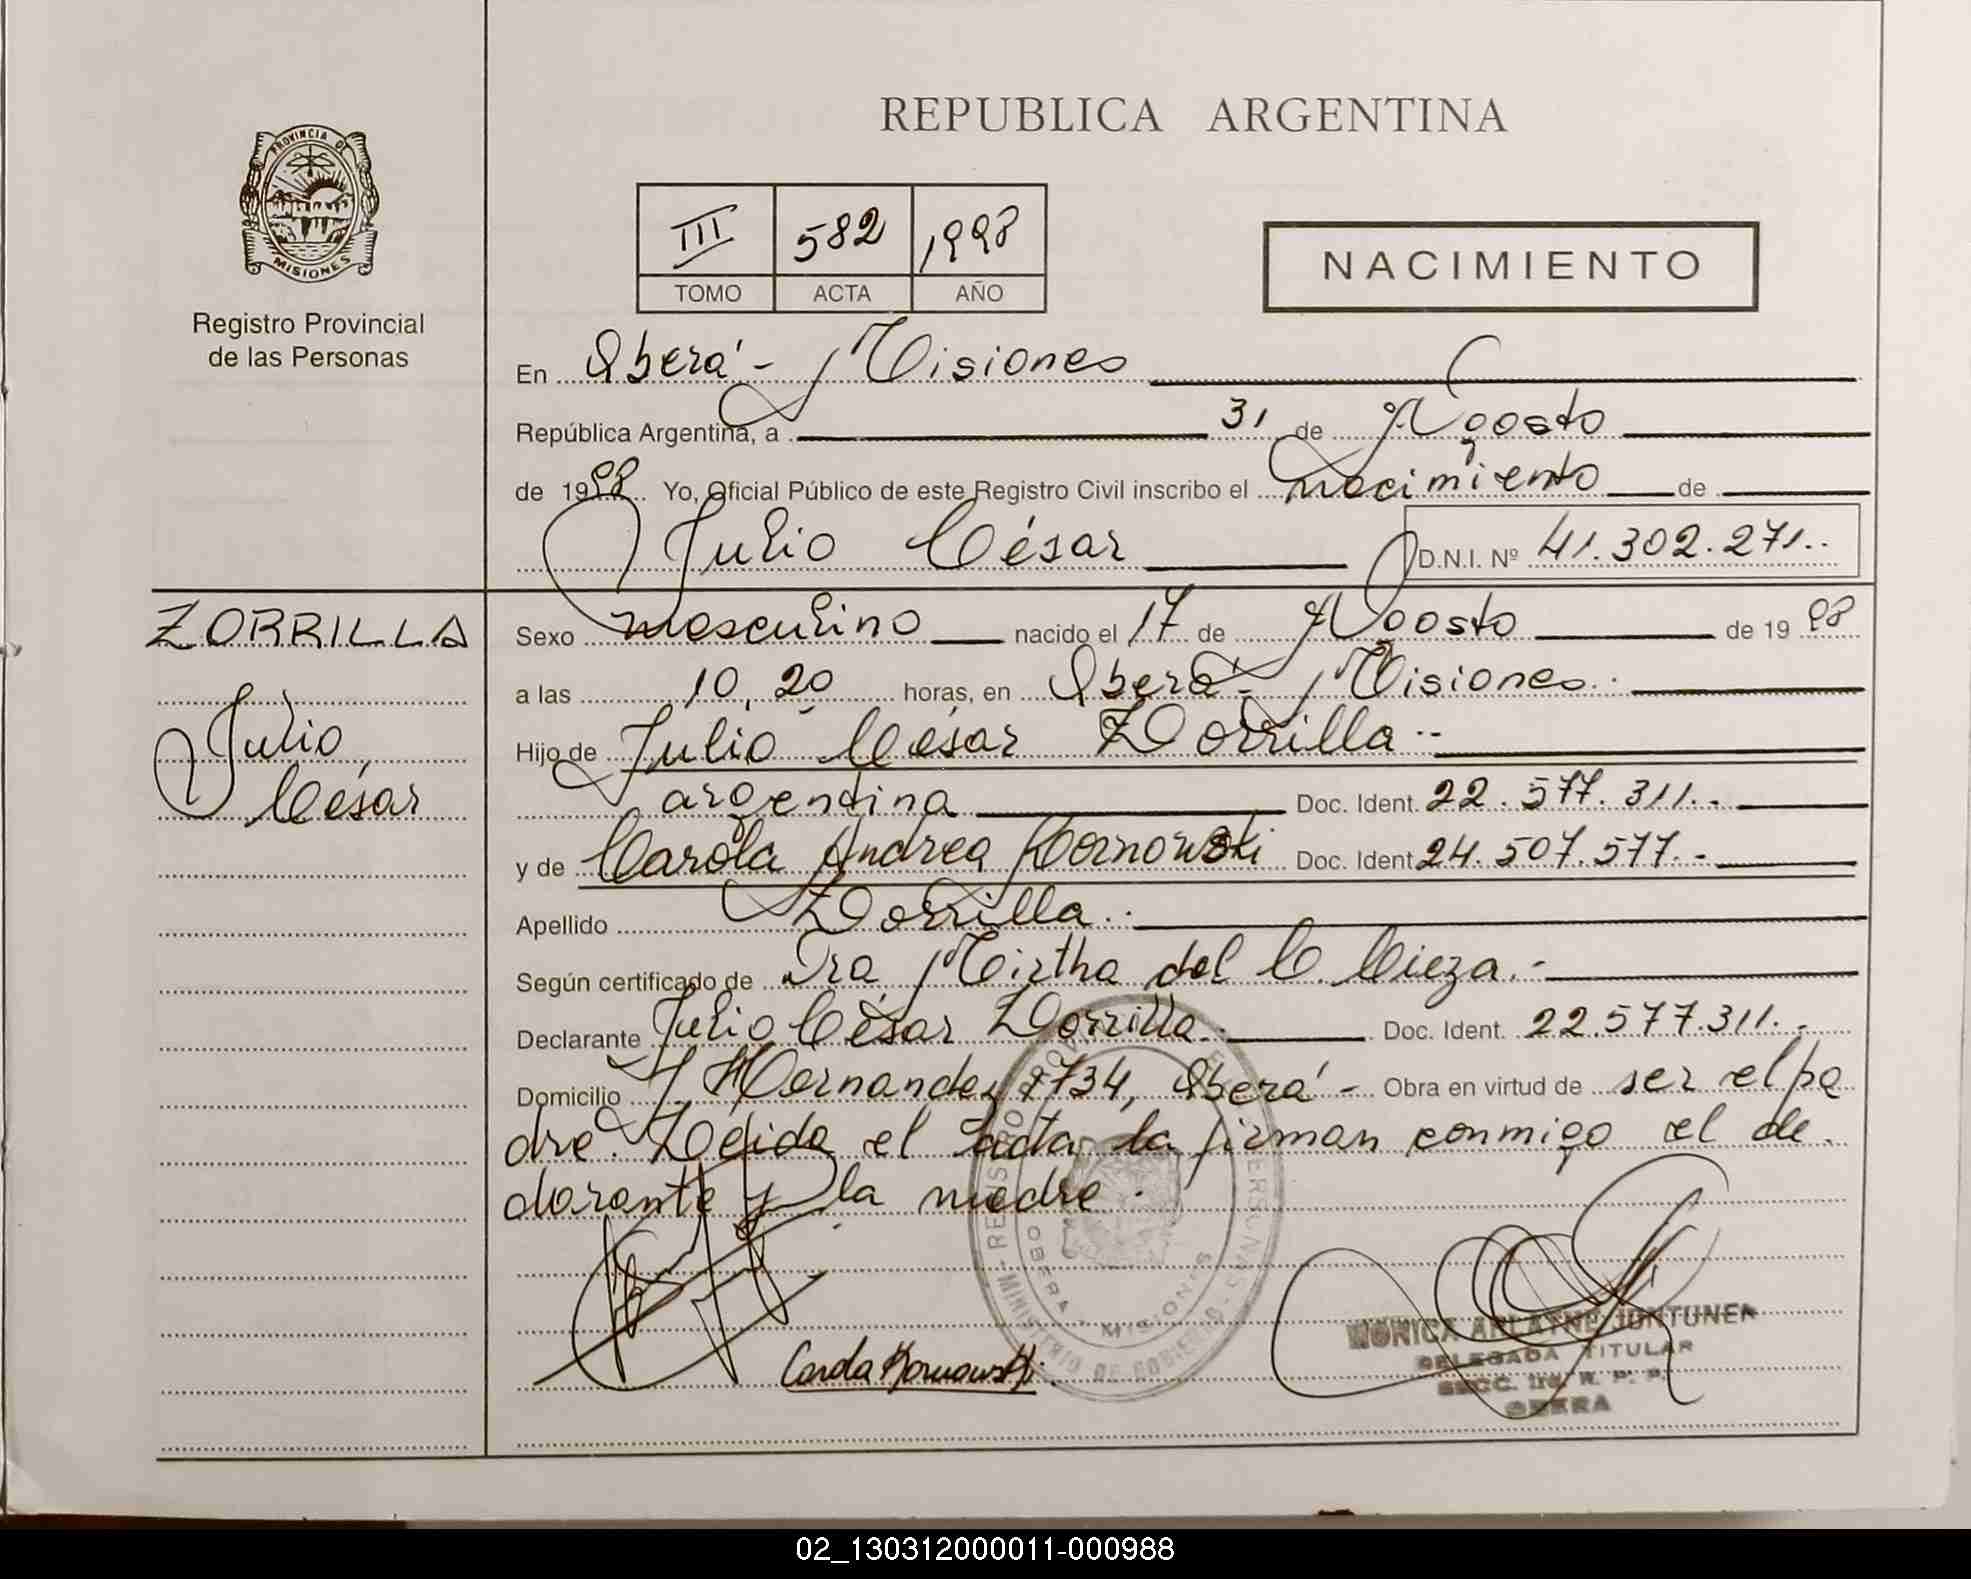 REPUBLICA ARGENTINA
PROVINCIA DE
MISIONES
Registro Provincial
de las Personas
III 582 1998
TOMO ACTA AÑO
NACIMIENTO
En Oberá - Misiones
República Argentina, a 31 de Agosto
de 1998 Yo, Oficial Público de este Registro Civil inscribo el nacimiento de
Julio César D.N.I. Nº 41.302.271..
ZORRILLA
Julio
César
Sexo masculino nacido el 17 de Agosto de 1998
a las 10,20 horas, en Oberá - Misiones.
Hijo de Julio César Zorrilla
argentina Doc. Ident. 22.577.311.-
y de Carola Andrea Kornowski Doc. Ident. 24.507.577.-
Apellido Zorrilla.
Según certificado de Dra Mirtha del C. Cieza.-
Declarante Julio César Zorrilla. Doc. Ident. 22.577.311.-
Domicilio J Hernandez 1734, Oberá - Obra en virtud de ser el pa
dre. Leida el acta la firman conmigo el de
clarante y la madre.
Carola Kornowski
REGISTRO PERSONAS - MINISTERIO DE GOBIERNO
OBERA - MISIONES
MONICA
DELEGADA TITULAR
SECC.
OBERA
02_130312000011-000988